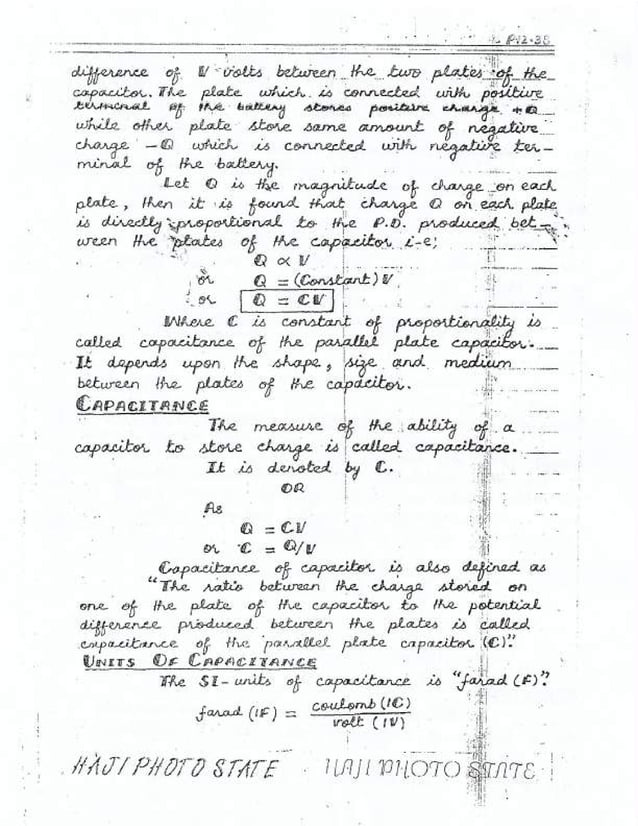 P12-38
difference of V volts between the two plates of the
capacitor. The plate which is connected with positive
terminal of the battery stores positive charge +Q
while other plate store same amount of negative
charge -Q which is connected with negative ter-
minal of the battery.
Let Q is the magnitude of charge on each
plate, then it is found that charge Q on each plate
is directly proportional to the P.D. produced bet-
ween the plates of the capacitor i-e;
Q ∝ V
or Q = (Constant) V
or Q = CV
Where C is constant of proportionality is
called capacitance of the parallel plate capacitor.
It depends upon the shape, size and medium
between the plates of the capacitor.
CAPACITANCE
The measure of the ability of a
capacitor to store charge is called capacitance.
It is denoted by C.
OR
As
Q = CV
or C = Q/V
Capacitance of capacitor is also defined as
"The ratio between the charge stored on
one of the plate of the capacitor to the potential
difference produced between the plates is called
capacitance of the parallel plate capacitor (C)."
UNITS OF CAPACITANCE
The SI-units of capacitance is "farad (F)".
farad (1F) = coulomb (1C) / volt (1V)
HAJI PHOTO STATE HAJI PHOTO STATE